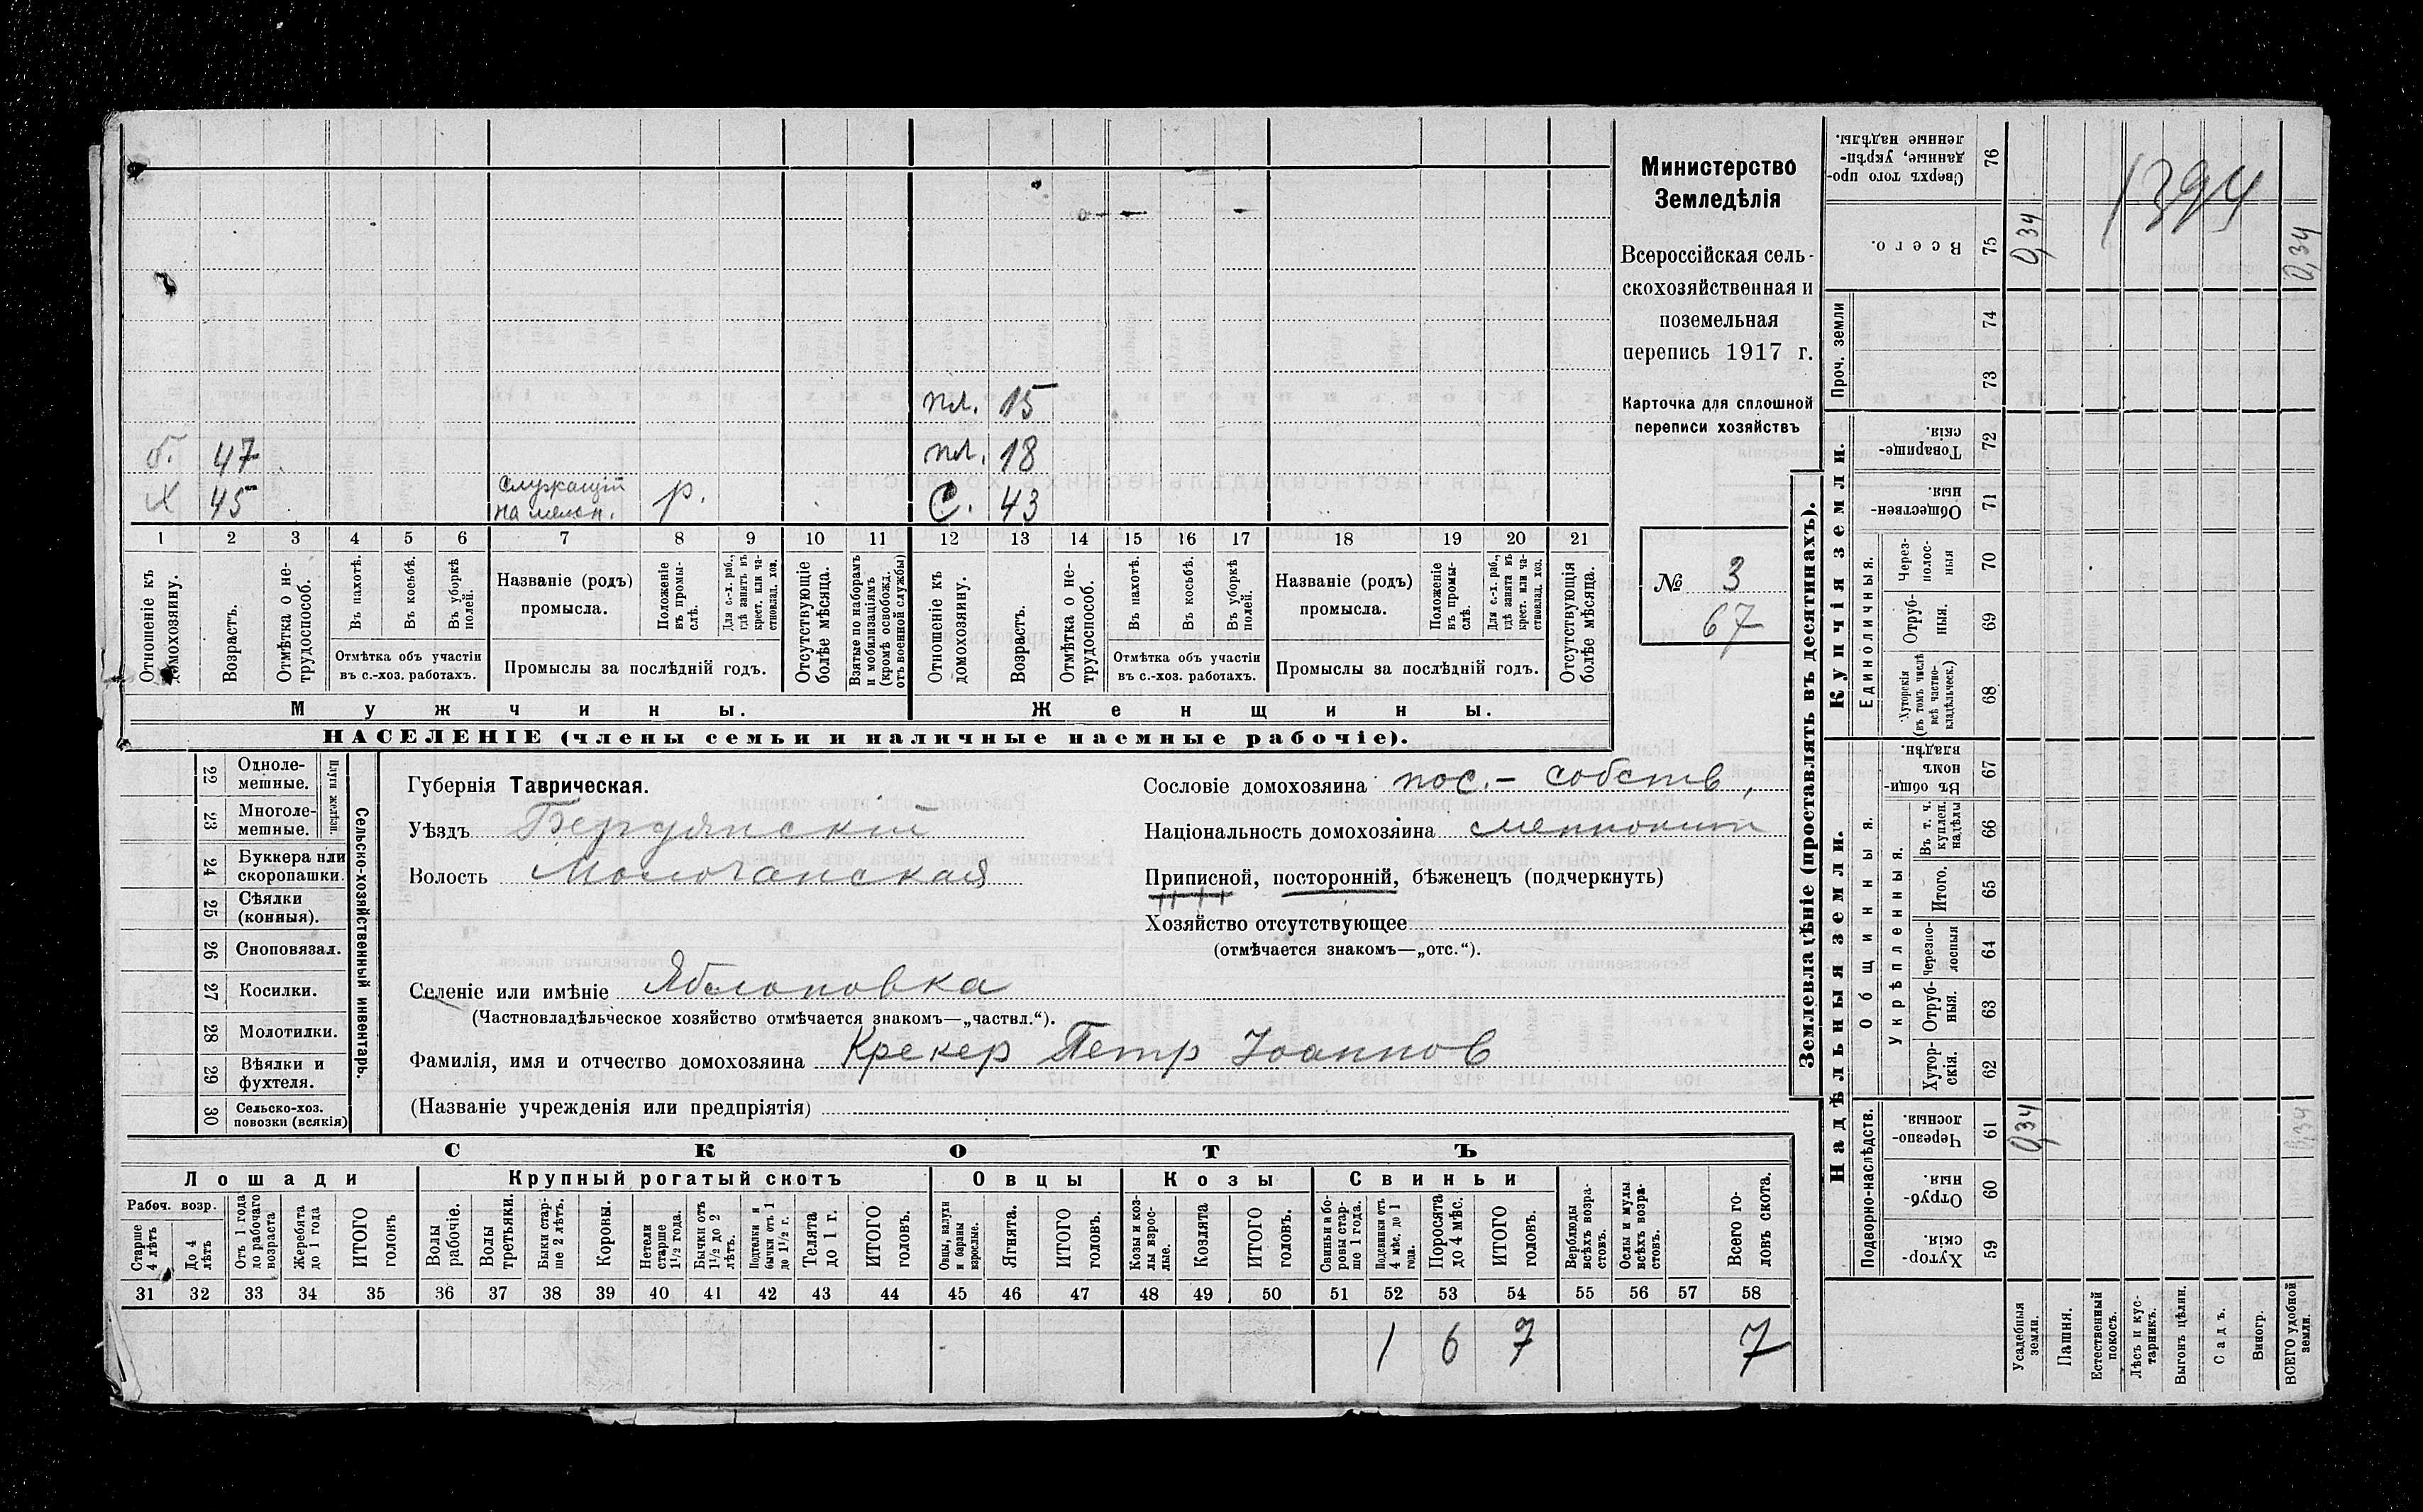 пл. 15
б. 47 пл. 18
Х 45 служащій на р. С. 43
1 2 3 4 5 6 7 8 9 10 11 12 13 14 15 16 17 18 19 20 21
Отношеніе къ домохозяину.
Возрастъ.
Отмѣтка о не-трудоспособ.
Въ пахотѣ.
Въ косьбѣ.
Въ уборкѣ полей.
Отмѣтка объ участіи
въ с.-хоз. работахъ.
Названіе (родъ)
промысла.
Положеніе въ промы-слѣ.
Для с.-х. раб., гдѣ занятъ въ крест. или ча-стновлад. хоз.
Промыслы за послѣдній годъ.
Отсутствующіе болѣе мѣсяца.
Взятые по наборамъ и мобилизаціямъ (кромѣ освобожд. отъ военной службы)
Отношеніе къ домохозяину.
Возрастъ.
Отмѣтка о не-трудоспособ.
Въ пахотѣ.
Въ косьбѣ.
Въ уборкѣ полей.
Отмѣтка объ участіи
въ с.-хоз. работахъ.
Названіе (родъ)
промысла.
Положеніе въ промы-слѣ.
Для с.-х. раб., гдѣ занята въ крест. или ча-стновлад. хоз.
Промыслы за послѣдній годъ.
Отсутствующія болѣе мѣсяца.
Мужчины. Женщины.
НАСЕЛЕНІЕ (члены семьи и наличные наемные рабочіе).
Министерство
Земледѣлія
Всероссійская сель-
скохозяйственная и
поземельная
перепись 1917 г.
Карточка для сплошной
переписи хозяйствъ
№ 3
67
22 Одноле-мешные.
23 Многоле-мешные.
Плуги желѣзн.
24 Буккера или скоропашки.
25 Сѣялки (конныя).
26 Сноповязал.
27 Косилки.
28 Молотилки.
29 Вѣялки и фухтеля.
30 Сельско-хоз. повозки (всякія)
Сельско-хозяйственный инвентарь.
Губернія Таврическая.
Уѣздъ Бердянскій
Волость Молочанская
Сословіе домохозяина пос.- собств,
Національность домохозяина меннонит
Приписной, посторонній, бѣженецъ (подчеркнуть)
Хозяйство отсутствующее
(отмѣчается знакомъ—„отс.“).
Селеніе или имѣніе Яблоновка
(Частновладѣльческое хозяйство отмѣчается знакомъ—„частвл.“).
Фамилія, имя и отчество домохозяина Крекер Петр Іоаннов
(Названіе учрежденія или предпріятія)
СКОТЪ
Лошади Крупный рогатый скотъ Овцы Козы Свиньи
Рабоч. возр.
Старше 4 лѣтъ
До 4 лѣтъ
Отъ 1 года до рабочаго возраста
Жеребята до 1 года
ИТОГО головъ
Волы рабочіе.
Волы третьяки.
Быки стар-ше 2 лѣтъ.
Коровы.
Нетели старше 1½ года.
Бычки отъ 1½ до 2 лѣтъ.
Подтелки и бычки отъ 1 до 1½ г.
Телята до 1 г.
ИТОГО головъ.
Овцы, валухи и бараны взрослые.
Ягнята.
ИТОГО головъ.
Козы и коз-лы взрос-лые.
Козлята
ИТОГО головъ.
Свиньи и бо-ровы стар-ше 1 года.
Подсвинки отъ 4 мѣс. до 1 года.
Поросята до 4 мѣс.
ИТОГО головъ.
Верблюды всѣхъ возра-стовъ.
Ослы и мулы всѣхъ возра-стовъ.
Всего го-ловъ скота.
31 32 33 34 35 36 37 38 39 40 41 42 43 44 45 46 47 48 49 50 51 52 53 54 55 56 57 58
1 6 7 7
Землевладѣніе (проставлять въ десятинахъ).
Надѣльныя земли. Купчія земли.
1394
Сверхъ того про-данные, укрѣп-ленные надѣлы. 76
Всего. 75 0,34 0,34
Проч. земли 74 73
Товарище-скія. 72
Обществен-ныя. 71
Единоличныя.
Через-полос-ныя 70
Отруб-ныя. 69
Хуторскія (въ томъ числѣ всѣ частно-владѣльческ.) 68
Общинныя.
Въ общи-номъ владѣн. 67
Укрѣпленныя.
Въ т. ч. куплен. надѣлы 66
Итого. 65
Черезпо-лосныя 64
Отруб-ныя. 63
Хутор-скія. 62
Подворно-наслѣдств.
Черезпо-лосныя. 61 0,34 0,34
Отруб-ныя. 60
Хутор-скія. 59
Усадебныя земли.
Пашня.
Естественный покосъ.
Лѣсъ и кус-тарникъ.
Выгонъ цѣлин.
Садъ.
Виногр.
ВСЕГО удобной земли.